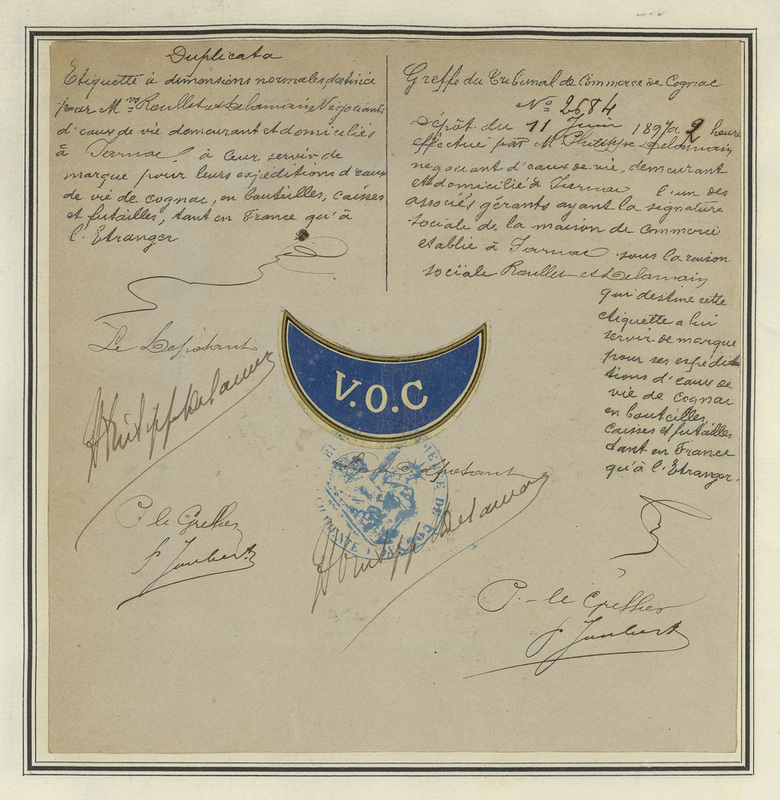 Duplicata
Etiquette à dimensions normales, destinée
par Mrs Roullet et Delamain Négociants
d'eaux de vie demeurant et domiciliés
à Jarnac, à leur servir de
marque pour leurs expéditions d'eaux
de vie de cognac, en bouteilles, caisses
et futailles, tant en France qu'à
l'Etranger
Le Déposant
Philippe Delamain
P. le Greffier
P Joubert
Greffe du Tribunal de Commerce de Cognac
No 2684
Dépôt du 11 Juin 1897 à 2 heure
effectué par M. Philippe Delamain
négociant d'eaux de vie, demeurant
et domicilié à Jarnac l'un des
associés gérants ayant la signature
sociale de la maison de commerce
établie à Jarnac sous la raison
sociale Roullet et Delamain
qui destine cette
étiquette a lui
servir de marque
pour ses expédi
tions d'eaux de
vie de Cognac
en bouteilles,
caisses et futailles
tant en France
qu'à l'Etranger.
V.O.C
Le Déposant
Philippe Delamain
P. le Greffier
P Joubert